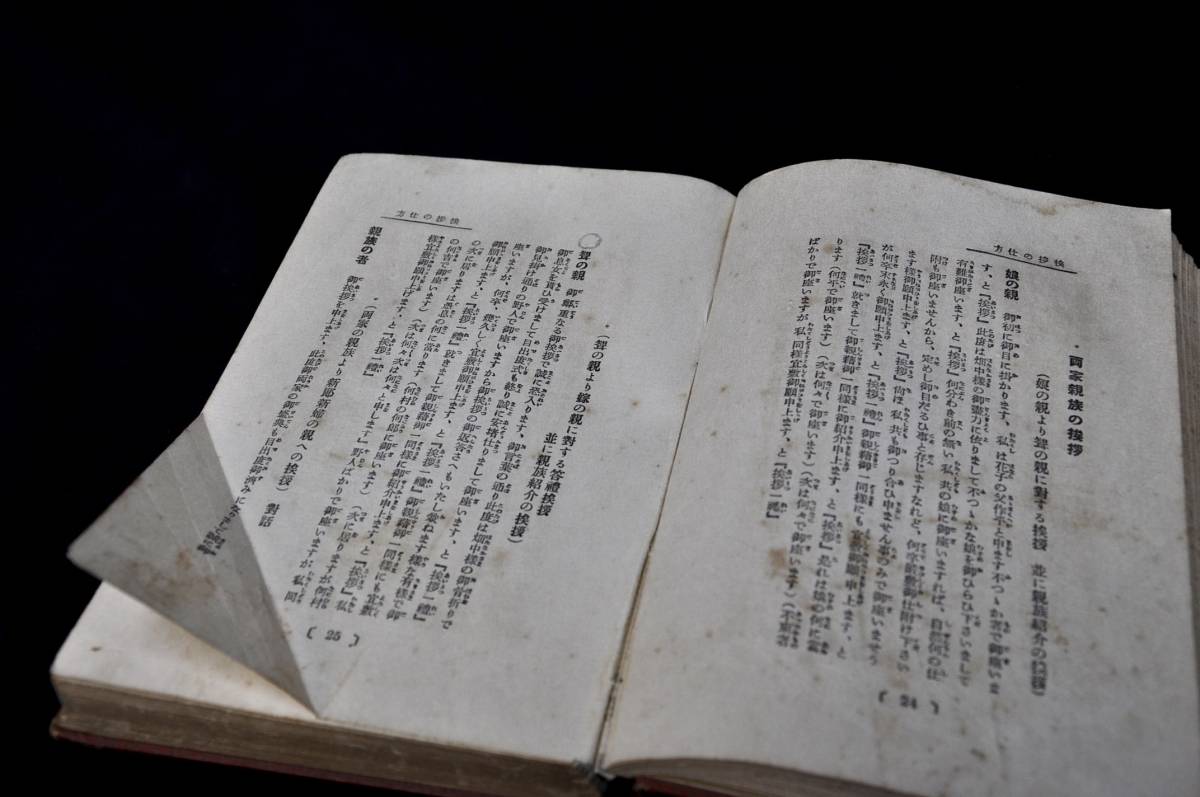 方仕の拶挨
両家親族の挨拶
(娘の親より聟の親に對する挨拶 並に親族紹介の挨拶)
娘の親 御初に御目に掛かります、私は花子の父作平と申ます不つゝか者で御座いま
す、と『挨拶』此度は畑中様の御盡力に依りまして不つゝかな娘を御もらひ下さいまして
有難御座います、と『挨拶』何分わき前の無い私共の娘に御座いますれば、自然何の仕
附も御座いませんから、定めし御目だるひ事と存じますなれど、何卒宜敷御仕附け下さい
ます様御願申上ます、と『挨拶』尚ほ私共も御つり合ひ申ません事のみで御座いますう
が何卒末永く御願申上ます、と『挨拶一禮』御親籍御一同様にも宜敷御願申上ます、と
『挨拶一禮』就きまして御親籍御一同様に御紹介申上ます、と『挨拶』是れは娘の何に當
ります(何平で御座います)(次は何々で御座います)(次は何々で御座います)(不束者
ばかりで御座いますが私同様宜敷御願申上ます、と『挨拶一禮』
( 24 )
方仕の拶挨
(聟の親より嫁の親に對する答禮挨拶
並に親族紹介の挨拶)
聟の親 御鄭重なる御挨拶で誠に恐入ります、御言葉の通り此度は畑中様の御骨折りで
御息女を貰ひ受けまして目出度式も終り誠に安堵仕りまして御座います、と『挨拶』私
御見掛け通りの野人で御座いますから御挨拶の御返答さへもいたし兼ねます様な有様で御
座いますが、何卒、幾久しく宜敷御願申上ます、と『挨拶一禮』御親籍御一同様にも宜敷
御願申上ます、と『挨拶一禮』就きまして御親籍御一同様に御紹介申上ます、と『挨拶』
の次に居ります は愚息の何に當ります(何村の何郎に御座います)(次に居りますが何村
の何吉で御座います)(次は何々次は何々と申上ます』野人ばかりで御座いますが、私同
様宜敷御願申上げます、と『挨拶一禮』
(両家の親族より新郎新婦の親への挨拶) 對話
親族の者 御挨拶を申上ます、此度御両家の御盛典も目出度御濟みにな
( 25 )